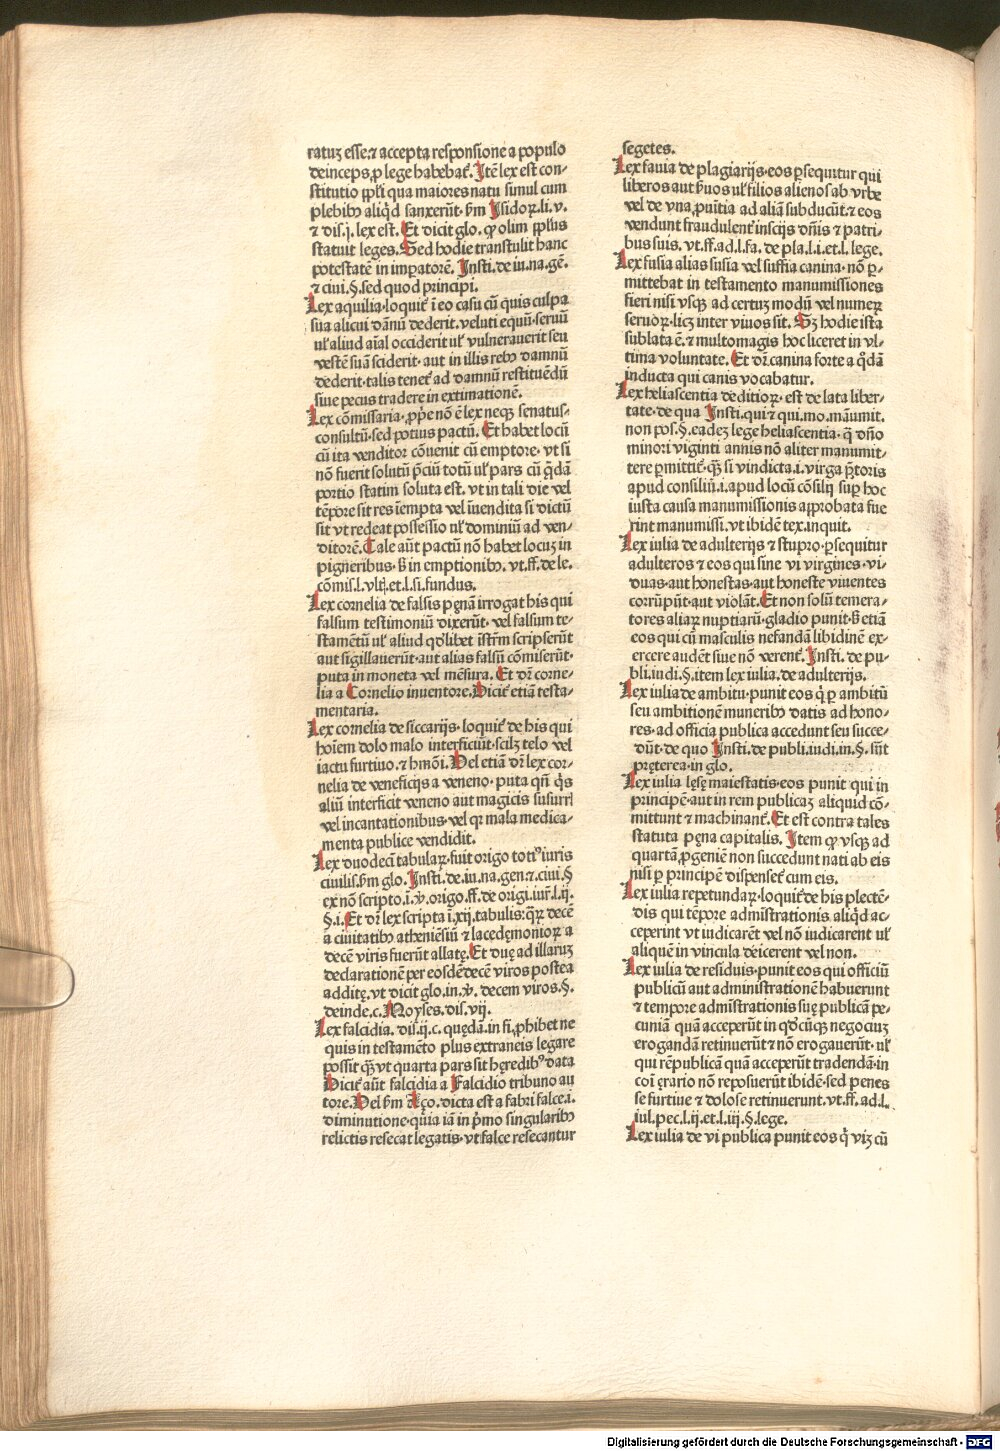 ratuꝫ esse.⁊ accepta responsione a populo
deinceps ꝓ lege habebat᷑. Itē lex est con-
stitutio ppl̓i qua maiores natu simul cum
plebibꝰ aliqͥd sanxerūt. ẜm Isidoꝝ. li. v.
⁊ dis. ij. lex est. Et dicit glo. ꝙ olim ppl̓us
statuit leges. Sed hodie transtulit hanc
potestatē in imꝑatorē. Insti. de iu. na. gē.
⁊ ciui. §. sed quod principi.
Lex aquilia. loquit᷑ ī eo casu cū quis culpa
sua alicui dānū dederit. veluti equū. seruū
ul̓ aliud aīal occiderit ul̓ vulnerauerit seu
vestē suā sciderit. aut in illis rebꝰ damnū
dederit. talis tenet᷑ ad damnū restituēdū
siue pecus tradere in extimationē.
Lex cōmissaria. ꝓpͥe nō ē lex neqꝫ senatus-
consultū. sed potius pactū. Et habet locū
cū ita venditor cōuenit cū emptore. vt si
nō fuerit solutū p̄ciū totū ul̓ pars cū qͣdā
portio statim soluta est. vt in tali die vel
tēpore sit res īempta vel īuendita si dictū
sit vt redeat possessio ul̓ dominiū ad ven-
ditorē. Tale aūt pactū nō habet locuꝫ in
pigneribus. ẜ in emptionibꝰ. vt. ff. de le.
cōmis. l. vlt̄. et. l. si. fundus.
Lex cornelia de falsis pęnā irrogat his qui
falsum testimoniū dixerūt. vel falsum te-
stamētū ul̓ aliud qd̓libet īstrm̄ scripserūt
aut sigillauerūt. aut alias falsū cōmiserūt.
puta in moneta vel mēsura. Et dr̄ corne-
lia a Cornelio inuentore. Dicit᷑ etiā testa-
mentaria.
Lex cornelia de siccarijs. loquit᷑ de his qui
hoīem dolo malo interficiūt. scilꝫ telo vel
iactu furtiuo. ⁊ hmōi. Vel etiā dr̄ lex cor-
nelia de veneficijs a veneno. puta qn̄ qͥs
aliū interficit veneno aut magicis susurri
vel incantationibus. vel qꝛ mala medica-
menta publice vendidit.
Lex duodecī tabulaꝝ. fuit origo totiꝰ iuris
ciuilis. ẜm glo. Insti. de. iu. na. gen. ⁊ ciui. §
ex nō scripto. i. v̓. origo. ff. de origi. iur̄. l. ij.
§. i. Et dr̄ lex scripta ī. xij. tabulis: qͣꝝ decē
a ciuitatibꝰ atheniēsiū ⁊ lacedęmonioꝝ a
decē viris fuerūt allatę. Et duę ad illaruꝫ
declarationē per eosdē decē viros postea
additę. vt dicit glo. in. v̓. decem viros. §.
deinde. c. Moyses. dis. vij.
Lex falcidia. dis. ij. c. quędā. in fi. ꝓhibet ne
quis in testamēto plus extraneis legare
possit qͣꝫ vt quarta pars sit hęredibꝰ data
Dicit᷑ aūt falcidia a Falcidio tribuno au
tore. Vel ẜm Aȥo. dicta est a fabri falce. i.
diminutione. quia iā in pͥmo singularibꝰ
relictis resecat legatis. vt falce resecantur
segetes.
Lex fauia de plagiarijs. eos ꝑsequitur qui
liberos aut ẜuos ul̓ filios alienos ab vrbe
vel de vna ꝓuītia ad aliā subducūt. ⁊ eos
vendunt fraudulent᷑ inscijs dn̄is ⁊ patri-
bus suis. vt. ff. ad. l. fa. de pla. l. i. et. l. lege.
Lex fusia alias susia vel suffia canina. nō ꝑ-
mittebat in testamento manumissiones
fieri nisi vsqꝫ ad certuꝫ modū vel numeꝝ
seruoꝝ. licꝫ inter viuos sit. Sꝫ hodie ista
sublata ē. ⁊ multomagis hoc liceret in vl-
tima voluntate. Et dr̄ canina forte a qͣdā
inducta qui canis vocabatur.
Lex heliascentia de ditioꝝ. est de lata liber-
tate. de qua Insti. qui ⁊ qui. mo. māumit.
non pos. §. eadeꝫ lege heliascentia. qͣ dn̄o
minori viginti annis nō aliter manumit-
tere ꝑmittit᷑. qͣꝫ si vindicta. i. virga p̄toris
apud consiliū. i. apud locū cōsilij suꝑ hoc
iusta causa manumissionis approbata fue
rint manumissi. vt ibidē tex. inquit.
Lex iulia de adulterijs ⁊ stupro. ꝑsequitur
adulteros ⁊ eos qui sine vi virgines. vi-
duas. aut honestas. aut honeste viuentes
corrūpūt. aut violāt. Et non solū temera-
tores aliaꝝ nuptiarū. gladio punit. ẜ etiā
eos qui cū masculis nefandā libidinē ex-
ercere audēt siue nō verent᷑. Insti. de pu-
bli. iudi. §. item lex iulia. de adulterijs.
Lex iulia de ambitu. punit eos qͥ ꝑ ambitū
seu ambitionē muneribꝰ datis ad hono-
res. ad officia publica accedunt seu succe-
dūt. de quo Insti. de publi. iudi. in. §. sūt
pręterea. in glo.
Lex iulia lęsę maiestatis. eos punit qui in
principē. aut in rem publicaꝫ aliquid cō-
mittunt ⁊ machinant᷑. Et est contra tales
statuta pęna capitalis. Item ꝙ vsqꝫ ad
quartā ꝓgeniē non succedunt nati ab eis
nisi ꝑ principē dispenset᷑ cum eis.
Lex iulia repetundaꝝ. loquit᷑ de his plectē-
dis qui tēpore admīstrationis aliqͥd ac-
ceperint vt iudicarēt vel nō iudicarent ul̓
aliquē in vincula deicerent vel non.
Lex iulia de residuis. punit eos qui officiū
publicū aut administrationē habuerunt
⁊ tempore admīstrationis suę publicā pe-
cuniā quā acceperūt in qd̓cūqꝫ negociuꝫ
erogandā retinuerūt ⁊ nō erogauerūt. ul̓
qui rēpublicā quā acceperūt tradendā. in
coī ęrario nō reposuerūt ibidē. sed penes
se furtiue ⁊ dolose retinuerunt. vt. ff. ad. l.
iul. pec. l. ij. et. l. iij. §. lege.
Lex iulia de vi publica punit eos qͥ viꝫ cū
Digitalisierung gefördert durch die Deutsche Forschungsgemeinschaft - DFG